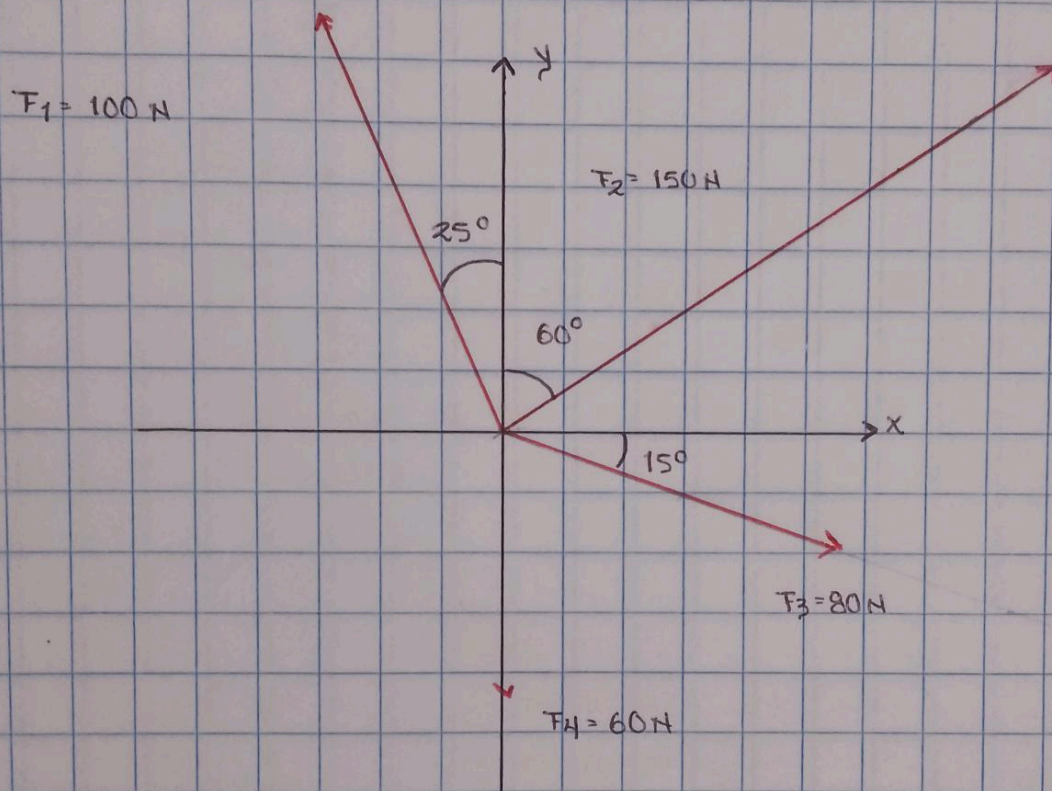 y
F1 = 100 N
F2 = 150 N
25°
60°
x
15°
F3 = 80 N
F4 = 60 N